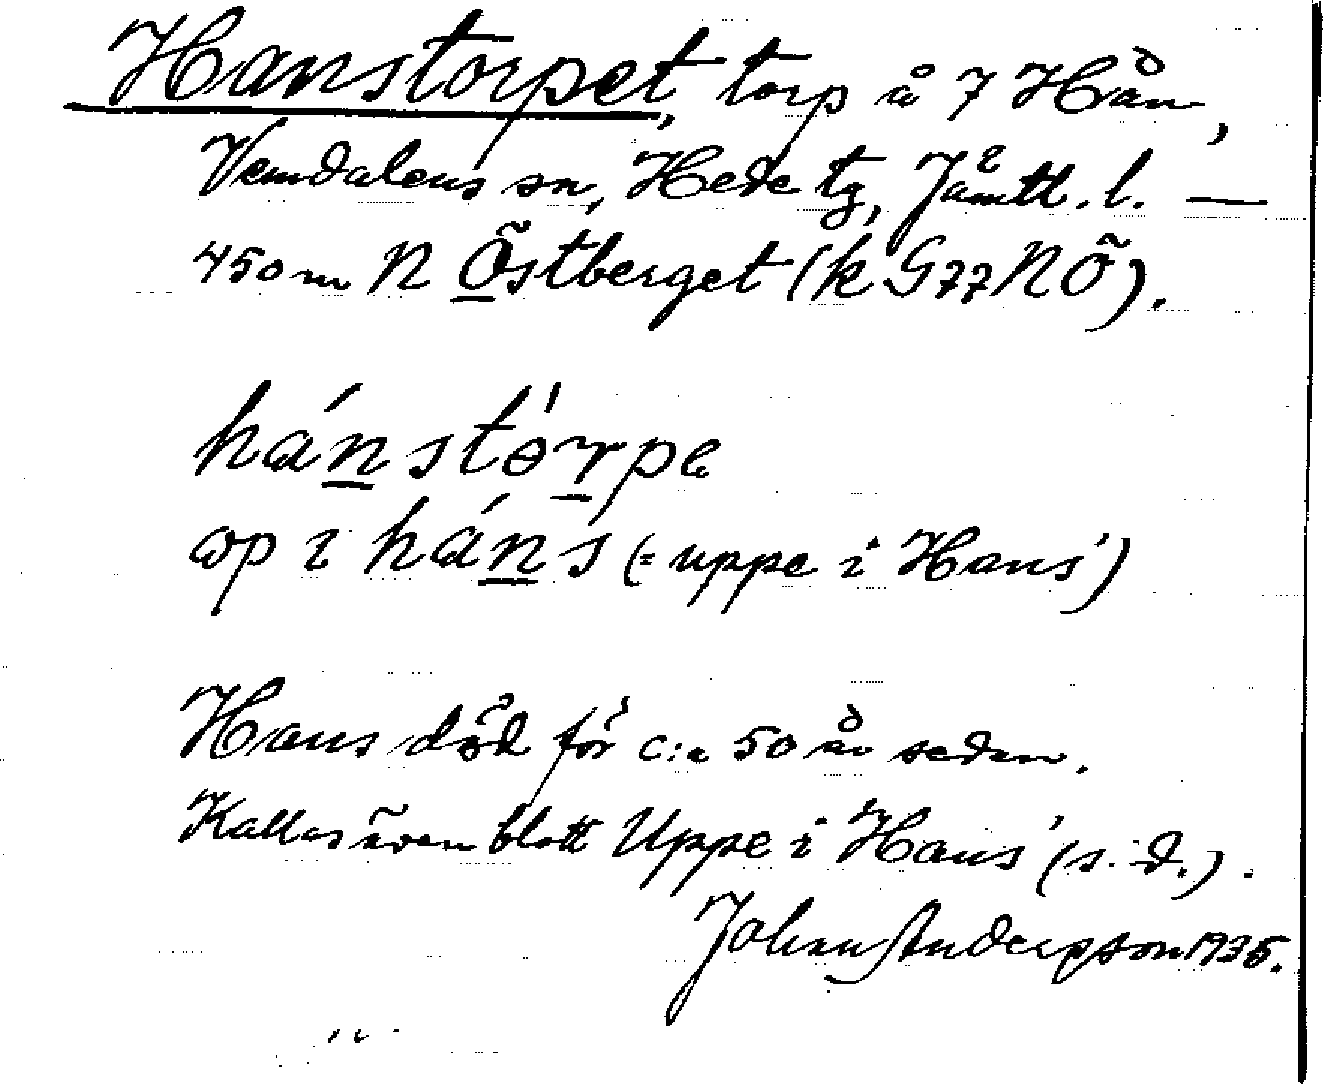 Hanstorpet, torp å 7 Hån,
Vemdalens sn, Hede tg, Jämtl. l. —
450 m N Östberget (k G77NÖ).
hánstórpe
op ı háns (= uppe i Hans')
Hans död för c:a 50 år sedan.
Kallas även blott Uppe i Hans' (s. d.).
Johan Anderpson 1935.